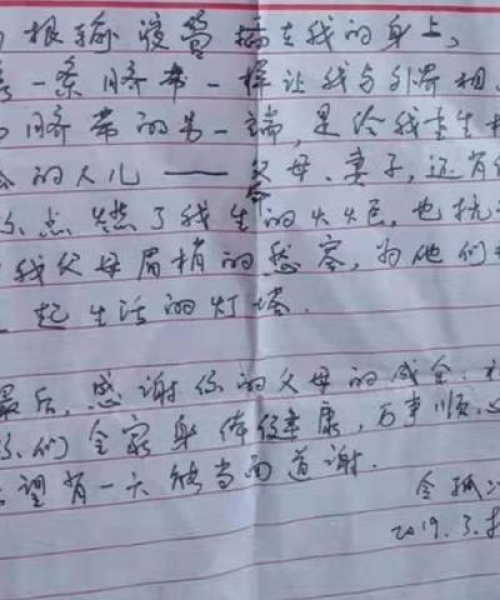 根输液管插在我的身上,
一条脐带一样让我与外界相
脐带的另一端,是给我重生
的人儿——父母、妻子,还有
你点燃了我生命的火焰,也抚
我父母眉梢的愁容,为他们
起生活的灯塔.
最后,感谢你的父母的成全.祝
你们全家身体健康,万事顺
望有一天能当面道谢.
令狐
2019.3.